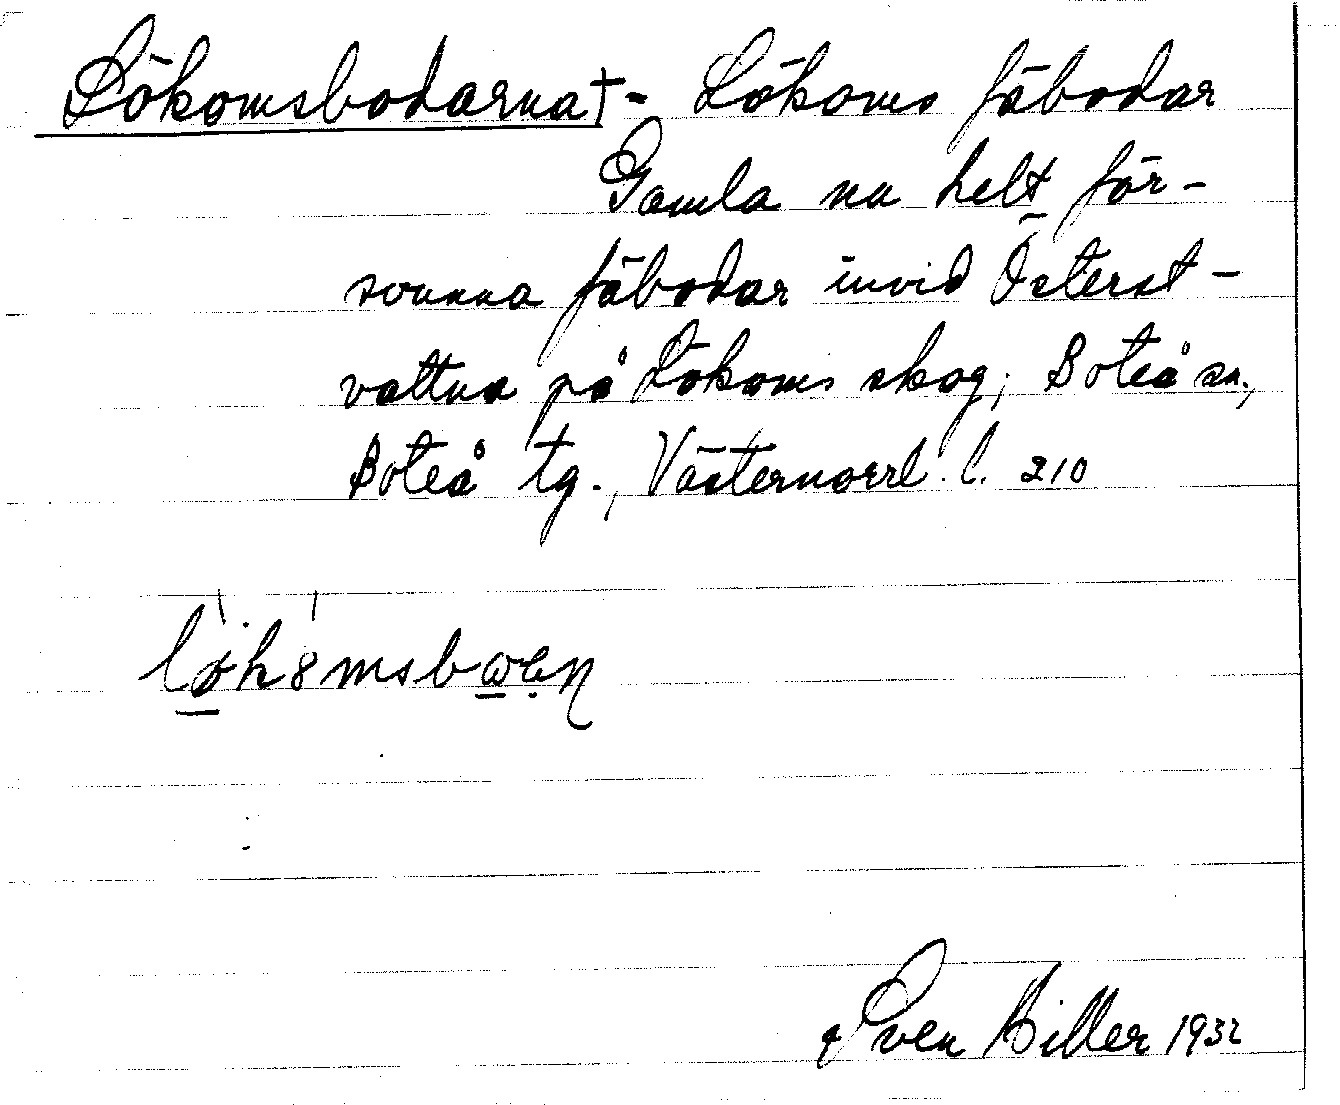 Lökomsbodarna† - Lökoms fäbodar
Gamla nu helt för-
svunna fäbodar invid Österst-
vattna på Lökoms skog, Boteå sn.,
Boteå tg., Västernorrl. l. 210
Sven Hiller 1932